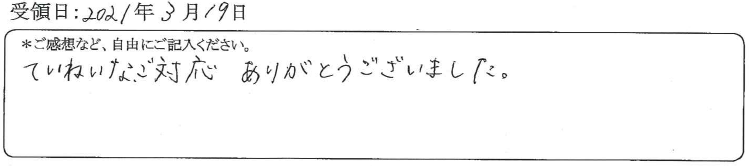 受領日:2021年3月19日
*ご感想など、自由にご記入ください。
ていねいなご対応 ありがとうございました。